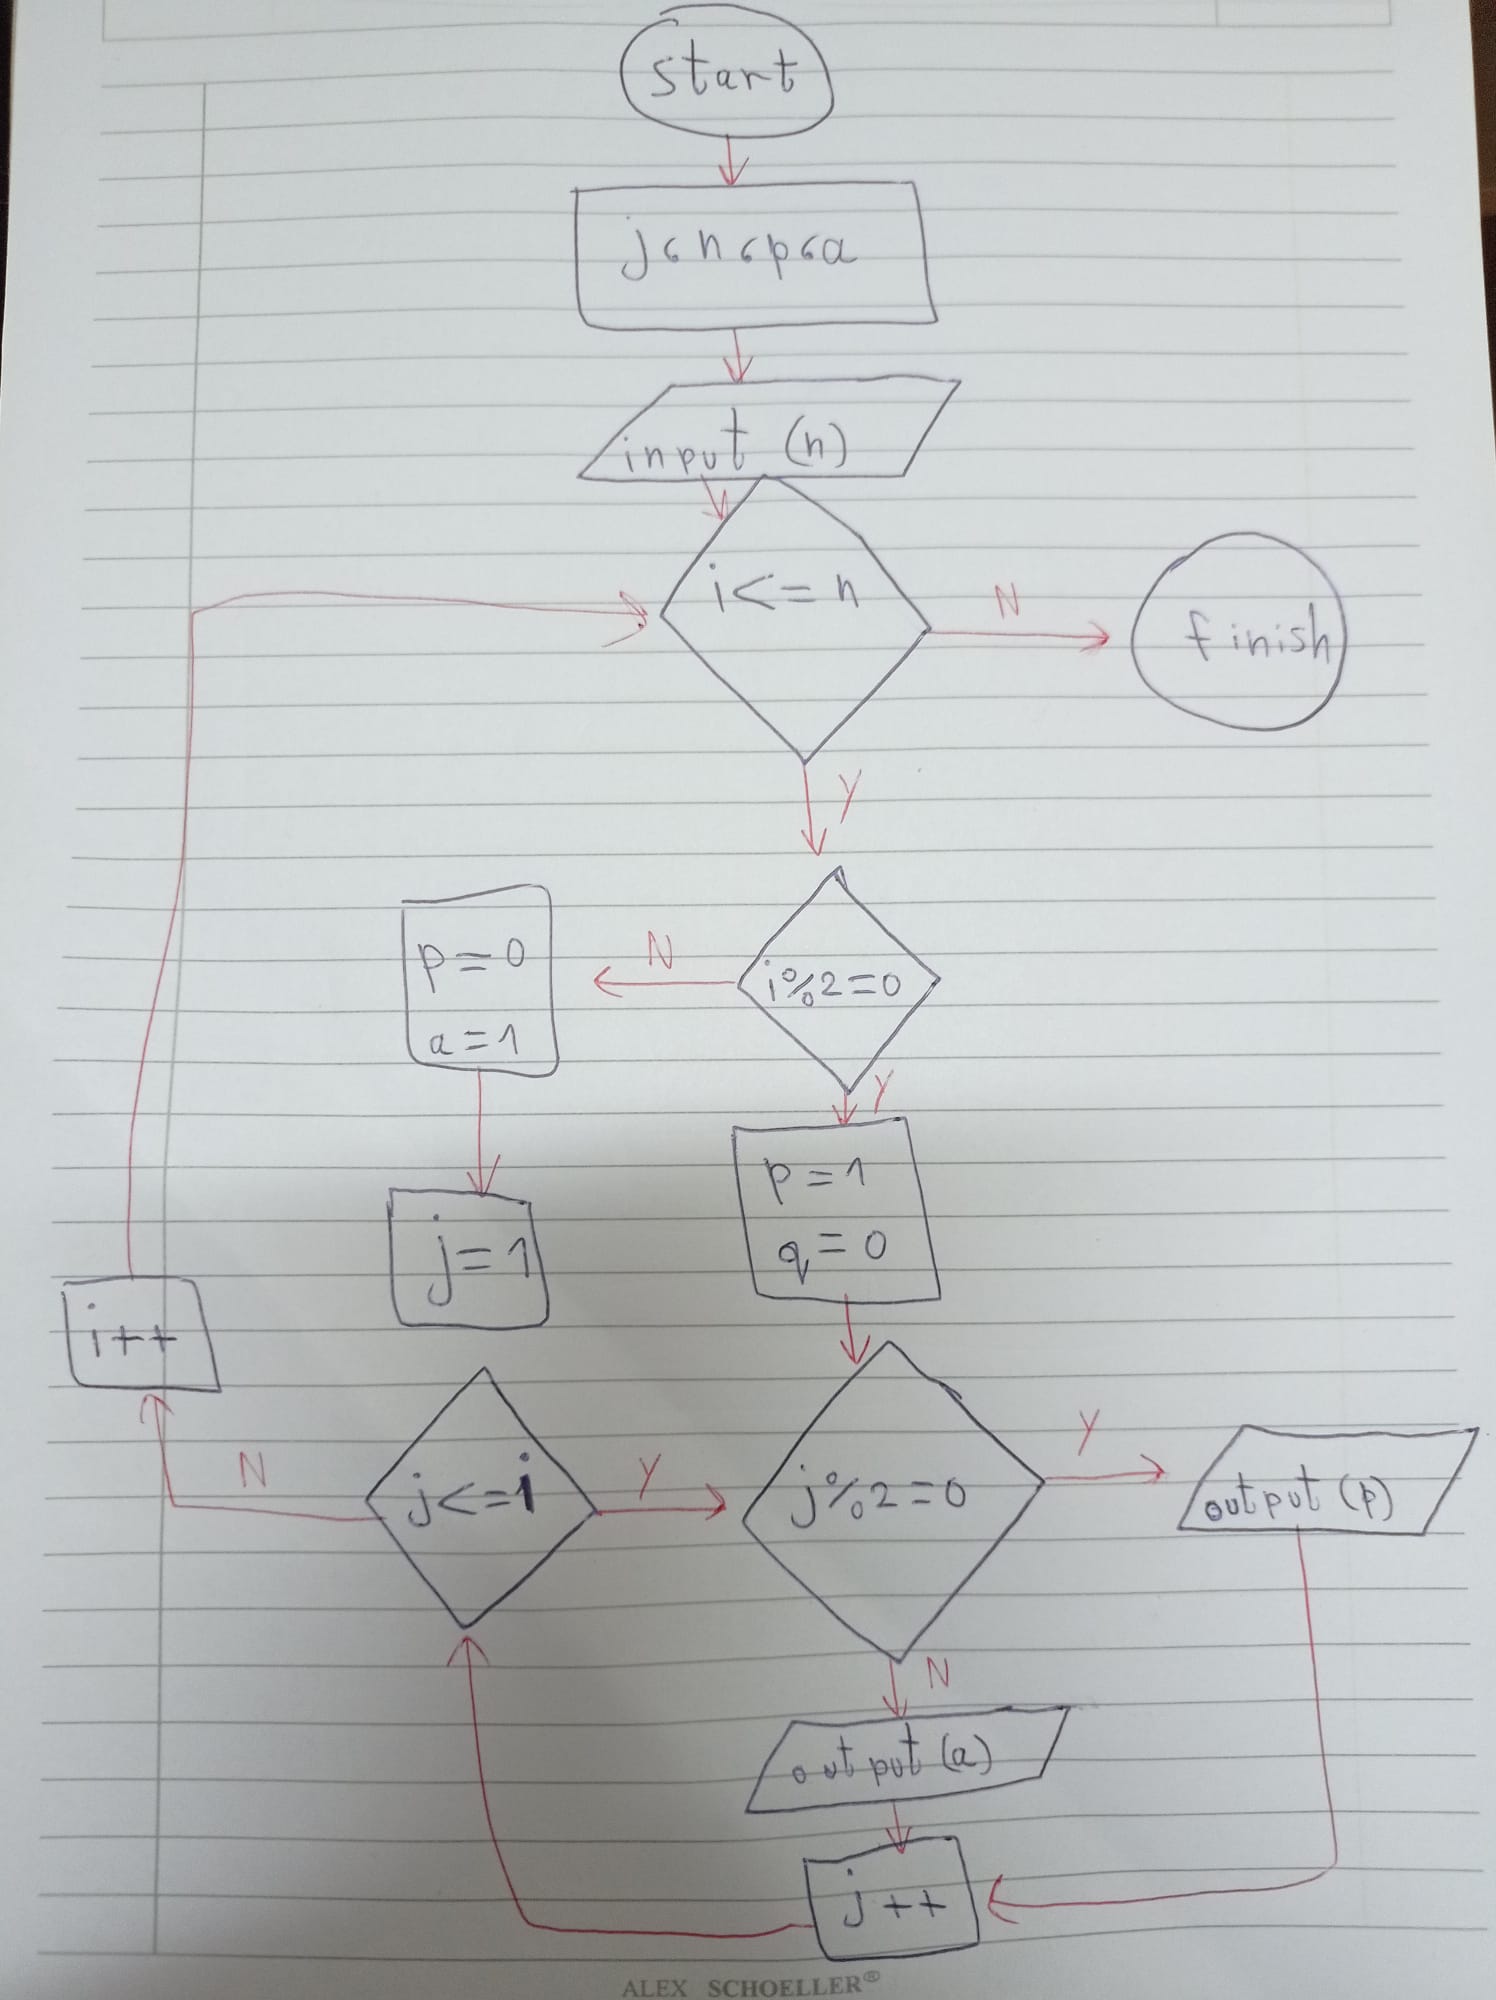 start
j,n,p,a
input (n)
i<=n
N
finish
Y
p=0
a=1
N
i%2=0
Y
p=1
q=0
j=1
i++
N
j<=i
Y
j%2=0
Y
output (p)
N
output (a)
j++
ALEX SCHOELLER®